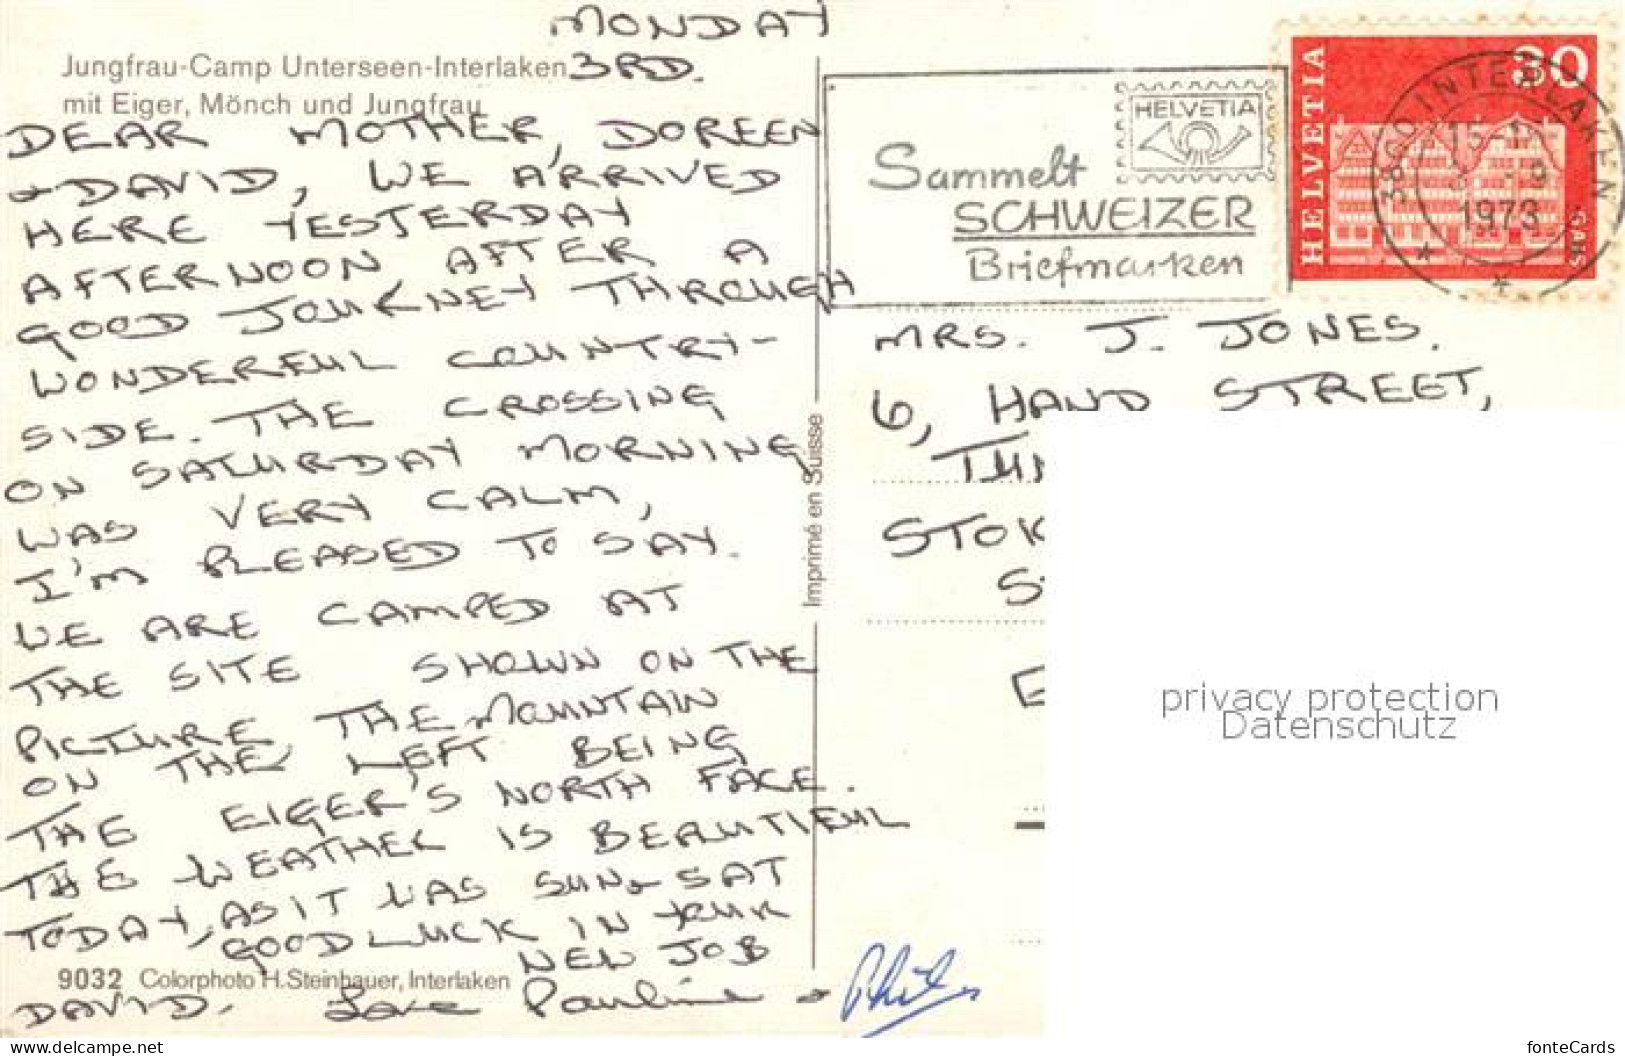 MONDAY
3RD.
Jungfrau-Camp Unterseen-Interlaken
mit Eiger, Mönch und Jungfrau
DEAR MOTHER, DOREEN
& DAVID, WE ARRIVED
HERE YESTERDAY
AFTERNOON AFTER A
GOOD JOURNEY THROUGH
WONDERFUL COUNTRY-
SIDE. THE CROSSING
ON SATURDAY MORNING
WAS VERY CALM,
I'M PLEASED TO SAY.
WE ARE CAMPED AT
THE SITE SHOWN ON THE
PICTURE, THE MOUNTAIN
ON THE LEFT BEING
THE EIGER'S NORTH FACE.
THE WEATHER IS BEAUTIFUL
TODAY, AS IT WAS SUN & SAT
GOOD LUCK IN YOUR
NEW JOB
DAVID. Love Pauline & Phil
9032 Colorphoto H. Steinhauer, Interlaken
Imprimé en Suisse
HELVETIA
Sammelt
SCHWEIZER
Briefmarken
HELVETIA
30
GAIS
3800 INTERLAKEN
1973
MRS. J. JONES.
6, HAND STREET,
STOK
privacy protection
Datenschutz
https://www.delcampe.net
fonteCards